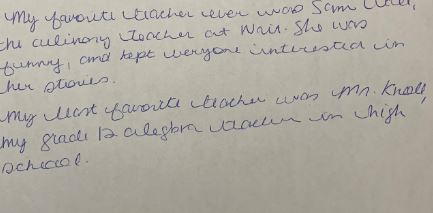 My favorite teacher ever was Sam
the culinary teacher at Wair. She was
funny, and kept everyone interested in
her stories.
My least favorite teacher was Mr. Knoll,
my grade 12 alegbra teacher in high
school.